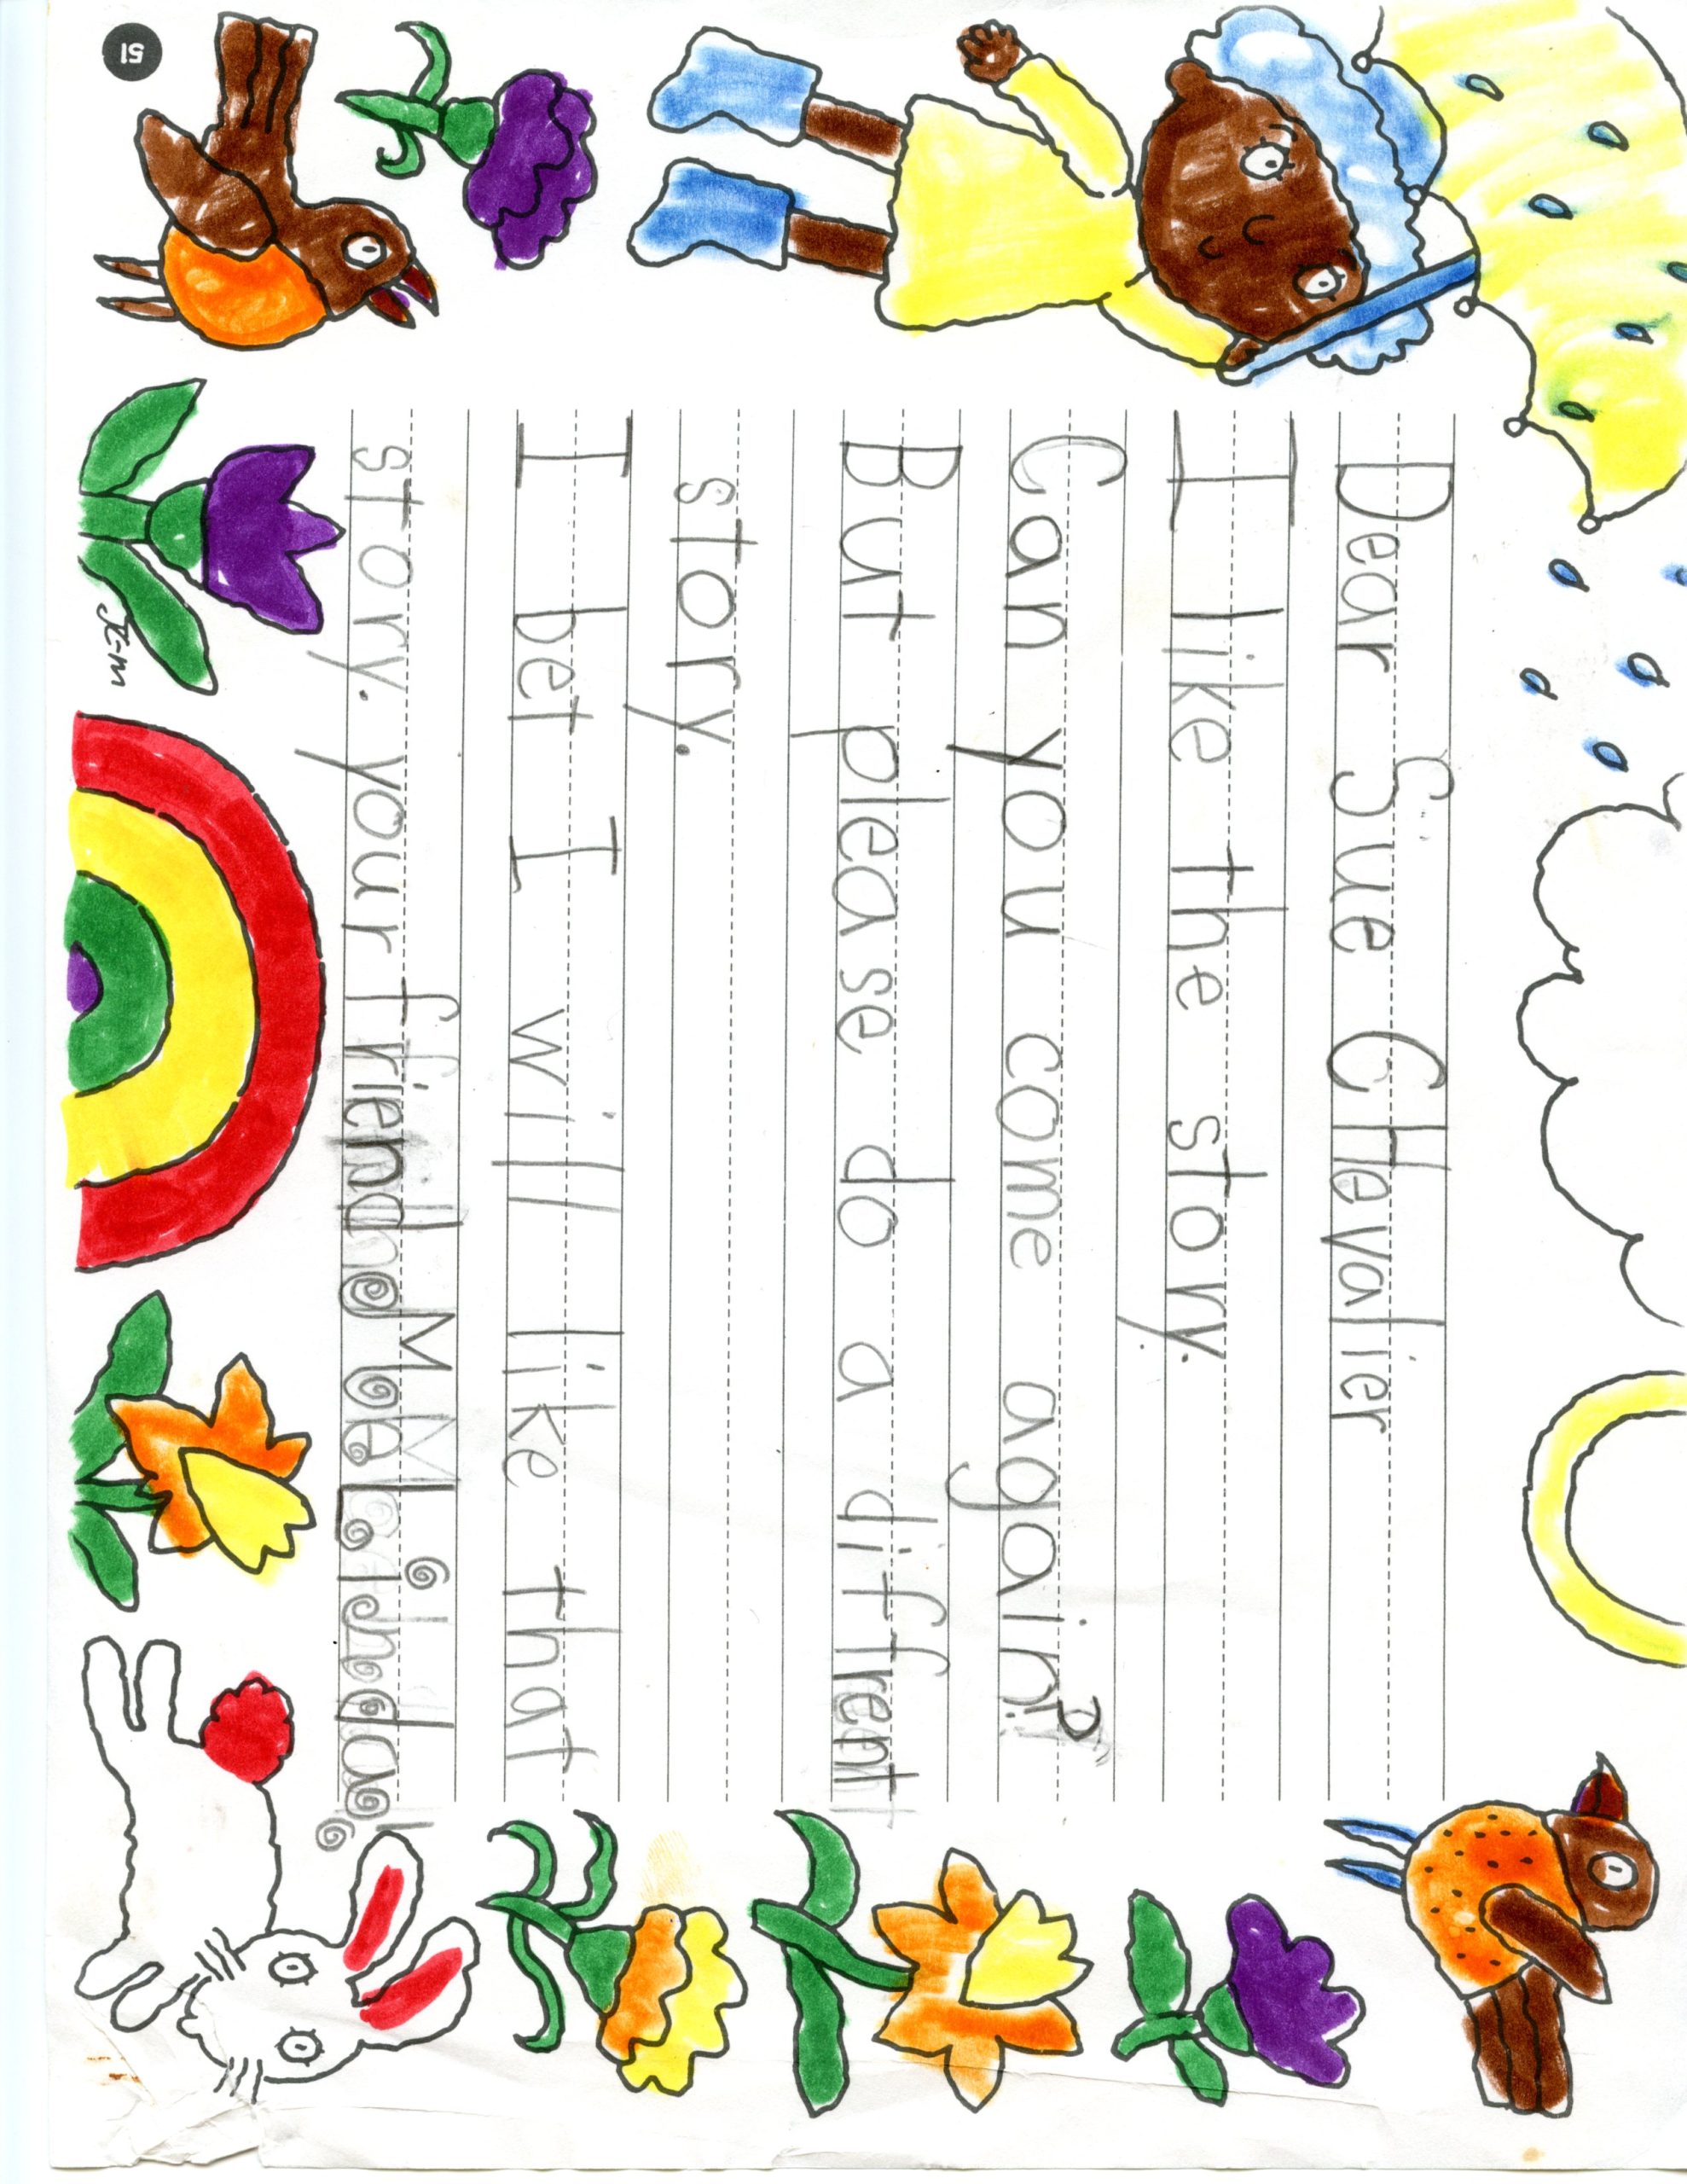 Dear Sue CHevalier
I like the story.
Can you come again?
But please do a diffrent
story.
I bet I will like that
story. your friend
51